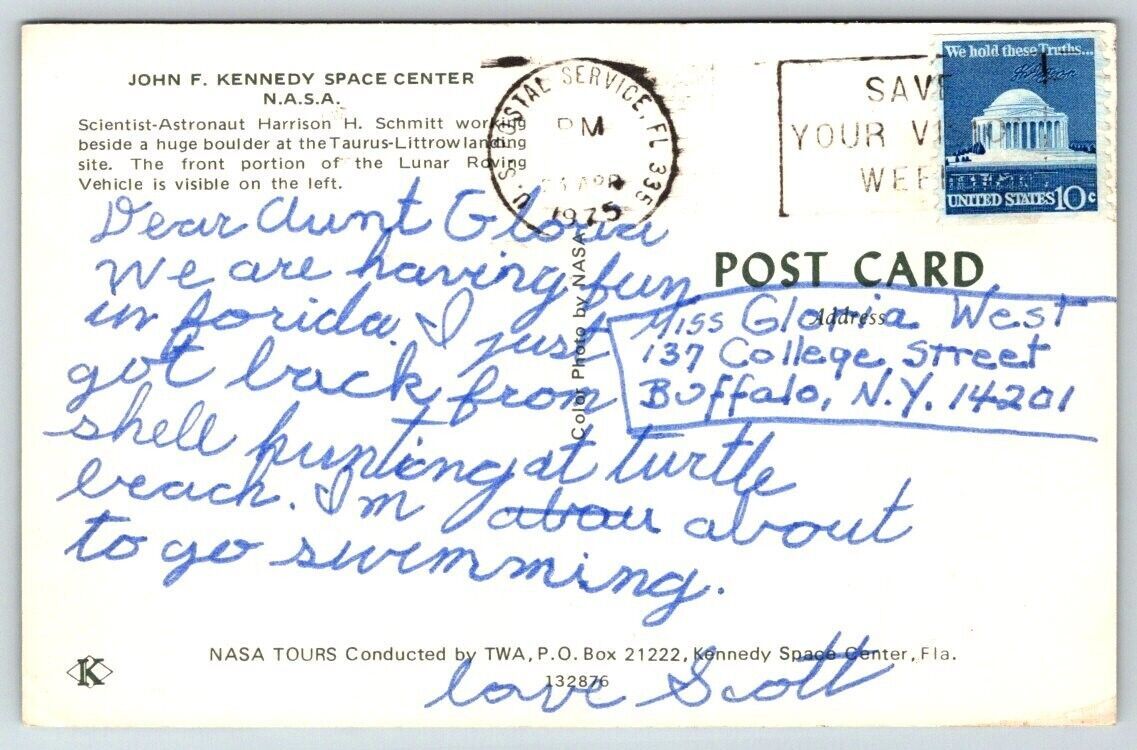 JOHN F. KENNEDY SPACE CENTER
N.A.S.A.
Scientist-Astronaut Harrison H. Schmitt working
beside a huge boulder at the Taurus-Littrow landing
site. The front portion of the Lunar Roving
Vehicle is visible on the left.
U.S. POSTAL SERVICE, FL 335
PM
APR
1975
SAVE
YOUR
We hold these Truths...
UNITED STATES 10c
POST CARD
Address
Miss Gloria West
137 College Street
Buffalo, N.Y. 14201
Color Photo by NASA
Dear Aunt Gloria
We are having fun
in forida. I just
got back from
shell hunting at turtle
beach. I'm abou about
to go swimming.
love Scott
K
NASA TOURS Conducted by TWA, P.O. Box 21222, Kennedy Space Center, Fla.
132876